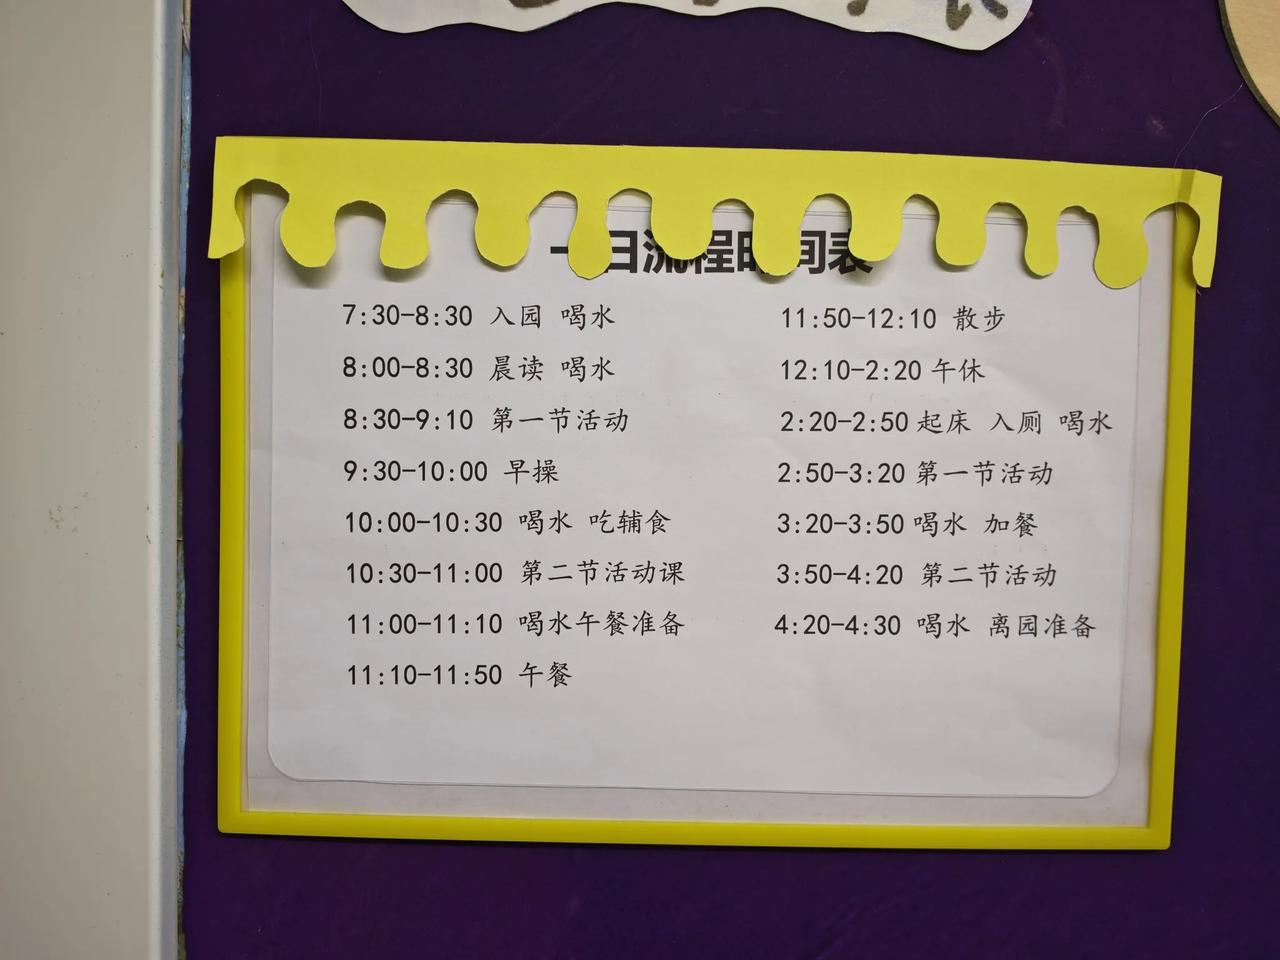 一日流程时间表
7:30-8:30 入园 喝水
8:00-8:30 晨读 喝水
8:30-9:10 第一节活动
9:30-10:00 早操
10:00-10:30 喝水 吃辅食
10:30-11:00 第二节活动课
11:00-11:10 喝水午餐准备
11:10-11:50 午餐
11:50-12:10 散步
12:10-2:20 午休
2:20-2:50 起床 入厕 喝水
2:50-3:20 第一节活动
3:20-3:50 喝水 加餐
3:50-4:20 第二节活动
4:20-4:30 喝水 离园准备